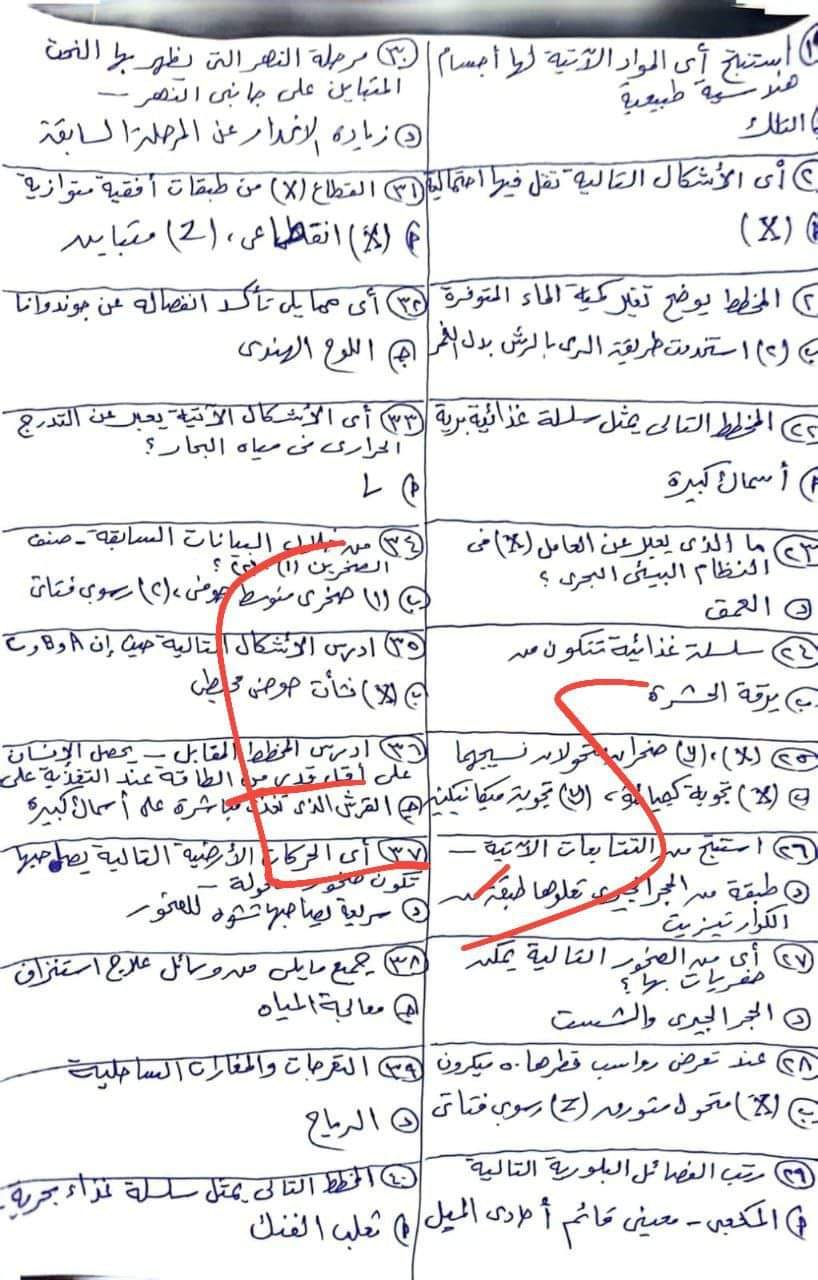 ١٩ استنتج أى المواد الآتية لها أجسام
هندسية طبيعية
التلك
أى الأشكال التالية تقل فيها احتمالية
(X)
المخطط يوضح تغير كمية الماء المتوفرة
ب (٢) استخدمت طريقة الرى بالرش بدل الغمر
٢٢ المخطط التالى يمثل سلسلة غذائية برية
أ أسماك كبيرة
٢٣ ما الذى يعبر عن العامل (X) فى
النظام البيئى البحرى ؟
د العمق
٢٤ سلسلة غذائية تتكون من
ب يرقة الحشرة
٢٥ (X)، (y) صخران متحولان نسيجهما
(X) تجوية كيميائية، (y) تجوية ميكانيكية
٢٦ استنتج من التتابعات الآتية –
د طبقة من الحجر الجيرى تعلوها طبقة من
الكوارتيزيت
٢٧ أى من الصخور التالية يمكن
حفريات بها؟
د الحجر الجيرى والشست
٢٨ عند تعرض رواسب قطرها ٥٠ ميكرون
ب (X) متحول متورق (Z) رسوبى فتاتى
٢٩ رتب الفصائل البلورية التالية
أ المكعبى - معينى قائم أحادى الميل
٣٠ مرحلة النهر التى يظهر بها النحت
المتباين على جانبى النهر –
د زيادة الانحدار عن المرحلة السابقة
٣١ القطاع (X) من طبقات أفقية متوازية
أ (X) انقطاعى، (Z) متباين
٣٢ أى مما يلى تأكد انفصاله عن جوندوانا
ج اللوح الهندى
٣٣ أى الأشكال الآتية يعبر عن التدرج
الحرارى فى مياه البحار؟
أ L
٣٤ من خلال البيانات السابقة - صنف
الصخرين (١)، (٢) ؟
ب (١) صخرى متوسط جوفى، (٢) رسوبى فتاتى
٣٥ ادرس الأشكال التالية حيث إن A و B و C
ب (X) نشأت حوض محيطى
٣٦ ادرس المخطط المقابل – يحصل الإنسان
على أقل قدر من الطاقة عند التغذية على
ج القرش الذى تغذى مباشرة على أسماك كبيرة
٣٧ أى الحركات الأرضية التالية يصاحبها
تكون صخور متحولة –
د سريعة يصاحبها تشوه للصخور
٣٨ جميع مايلى من وسائل علاج استنزاف
ج معالجة المياه
٣٩ التعرجات والمغارات الساحلية
د الرياح
٤٠ المخطط التالى يمثل سلسلة غذاء بحرية -
أ ثعلب الفنك